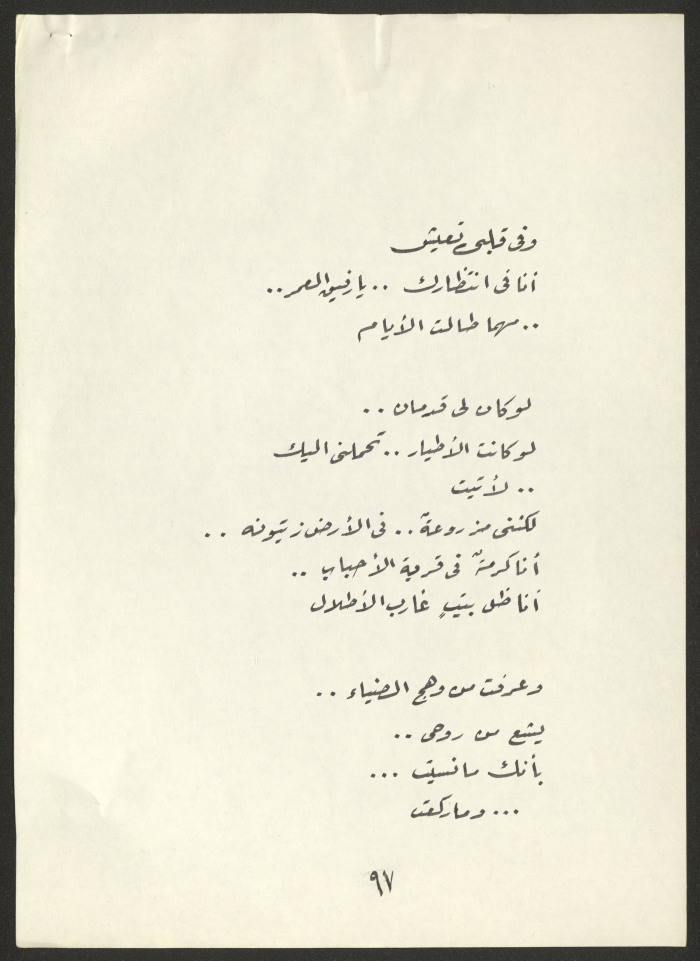 وفى قلبى تعيش
أنا فى انتظارك .. يا رفيق العمر ..
.. مهما طالت الأيام
لو كان لى قدمان ..
لو كانت الأطيار .. تحملنى اليك
.. لأتيت
لكننى مزروعة .. فى الأرض زيتونه ..
أنا كرمةٌ فى قرية الأحباب ..
أنا ظل بيتٍ غارب الأطلال
وعرفت من وهج الضياء ..
يشع من روحى ..
بأنك ما نسيت ...
... وما ركعت
٩٧